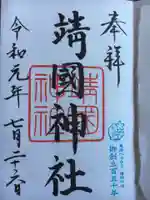 奉拝
靖國神社
令和元年七月二十六日
靖国神社
御創立百五十年